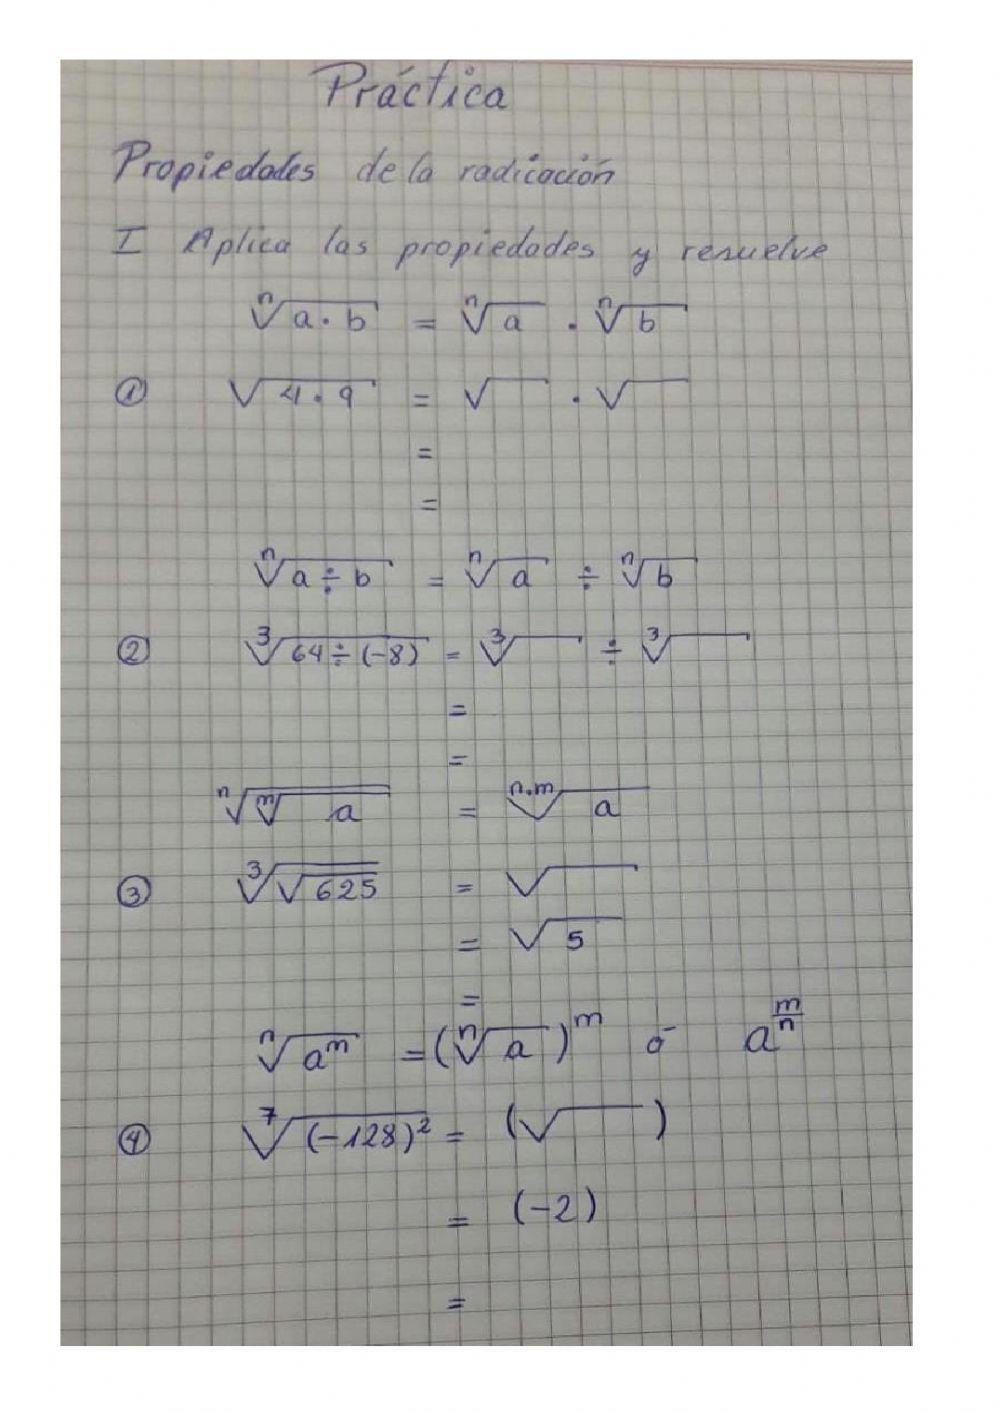 Práctica
Propiedades de la radicación
I Aplica las propiedades y resuelve
ⁿ√(a · b) = ⁿ√a · ⁿ√b
① √(4 · 9) = √ · √
=
=
ⁿ√(a ÷ b) = ⁿ√a ÷ ⁿ√b
② ³√(64 ÷ (-8)) = ³√ ÷ ³√
=
=
ⁿ√(ᵐ√a) = ⁿ·ᵐ√a
③ ³√(√625) = √
= √5
=
ⁿ√(aᵐ) = (ⁿ√a)ᵐ ó a^(m/n)
④ ⁷√((-128)²) = (√ )
= (-2)
=